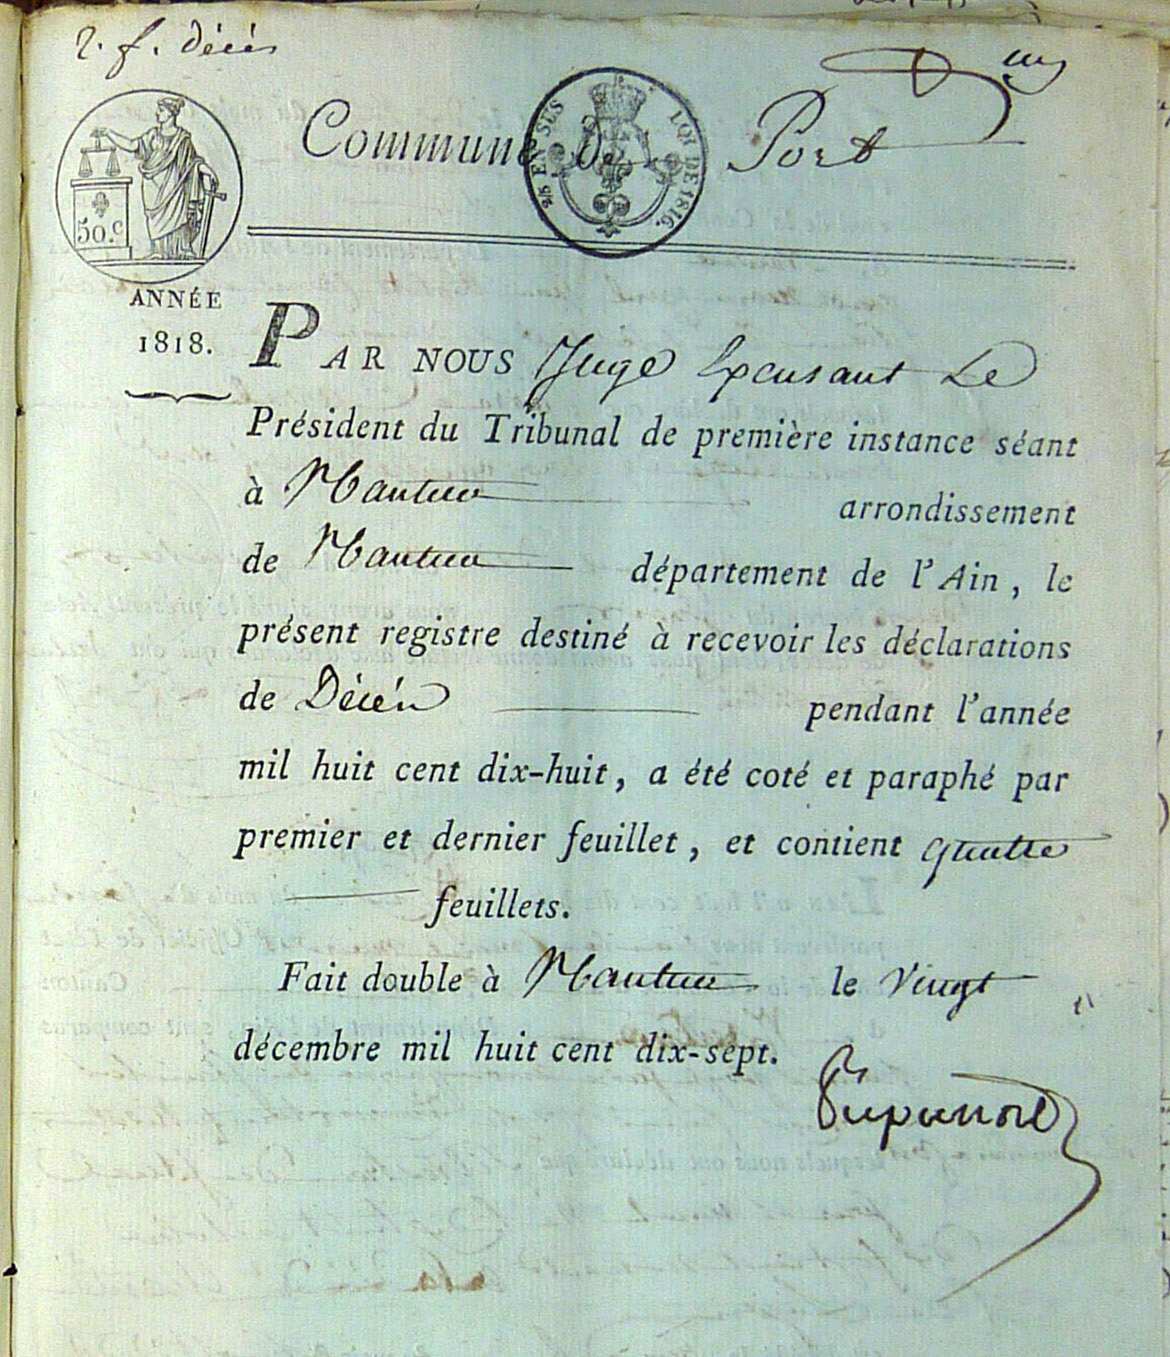 2. f. décès
Commune de Port
EN SUS LOI DE 1816.
50.c
ANNÉE
1818.
PAR NOUS Juge Exerçant Le
Président du Tribunal de première instance séant
à Nantua arrondissement
de Nantua département de l'Ain, le
présent registre destiné à recevoir les déclarations
de Décès pendant l'année
mil huit cent dix-huit, a été coté et paraphé par
premier et dernier feuillet, et contient quatre
feuillets.
Fait double à Nantua le Vingt
décembre mil huit cent dix-sept.